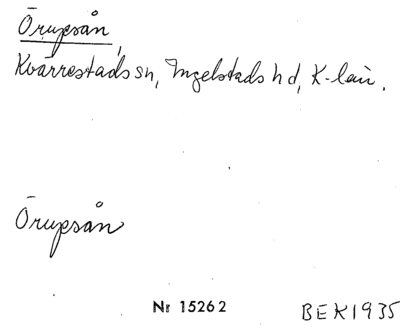 Örupsån,
Kvärrestads sn, Ingelstads hd, K-län.
Örupsån
Nr 15262 BEK1935